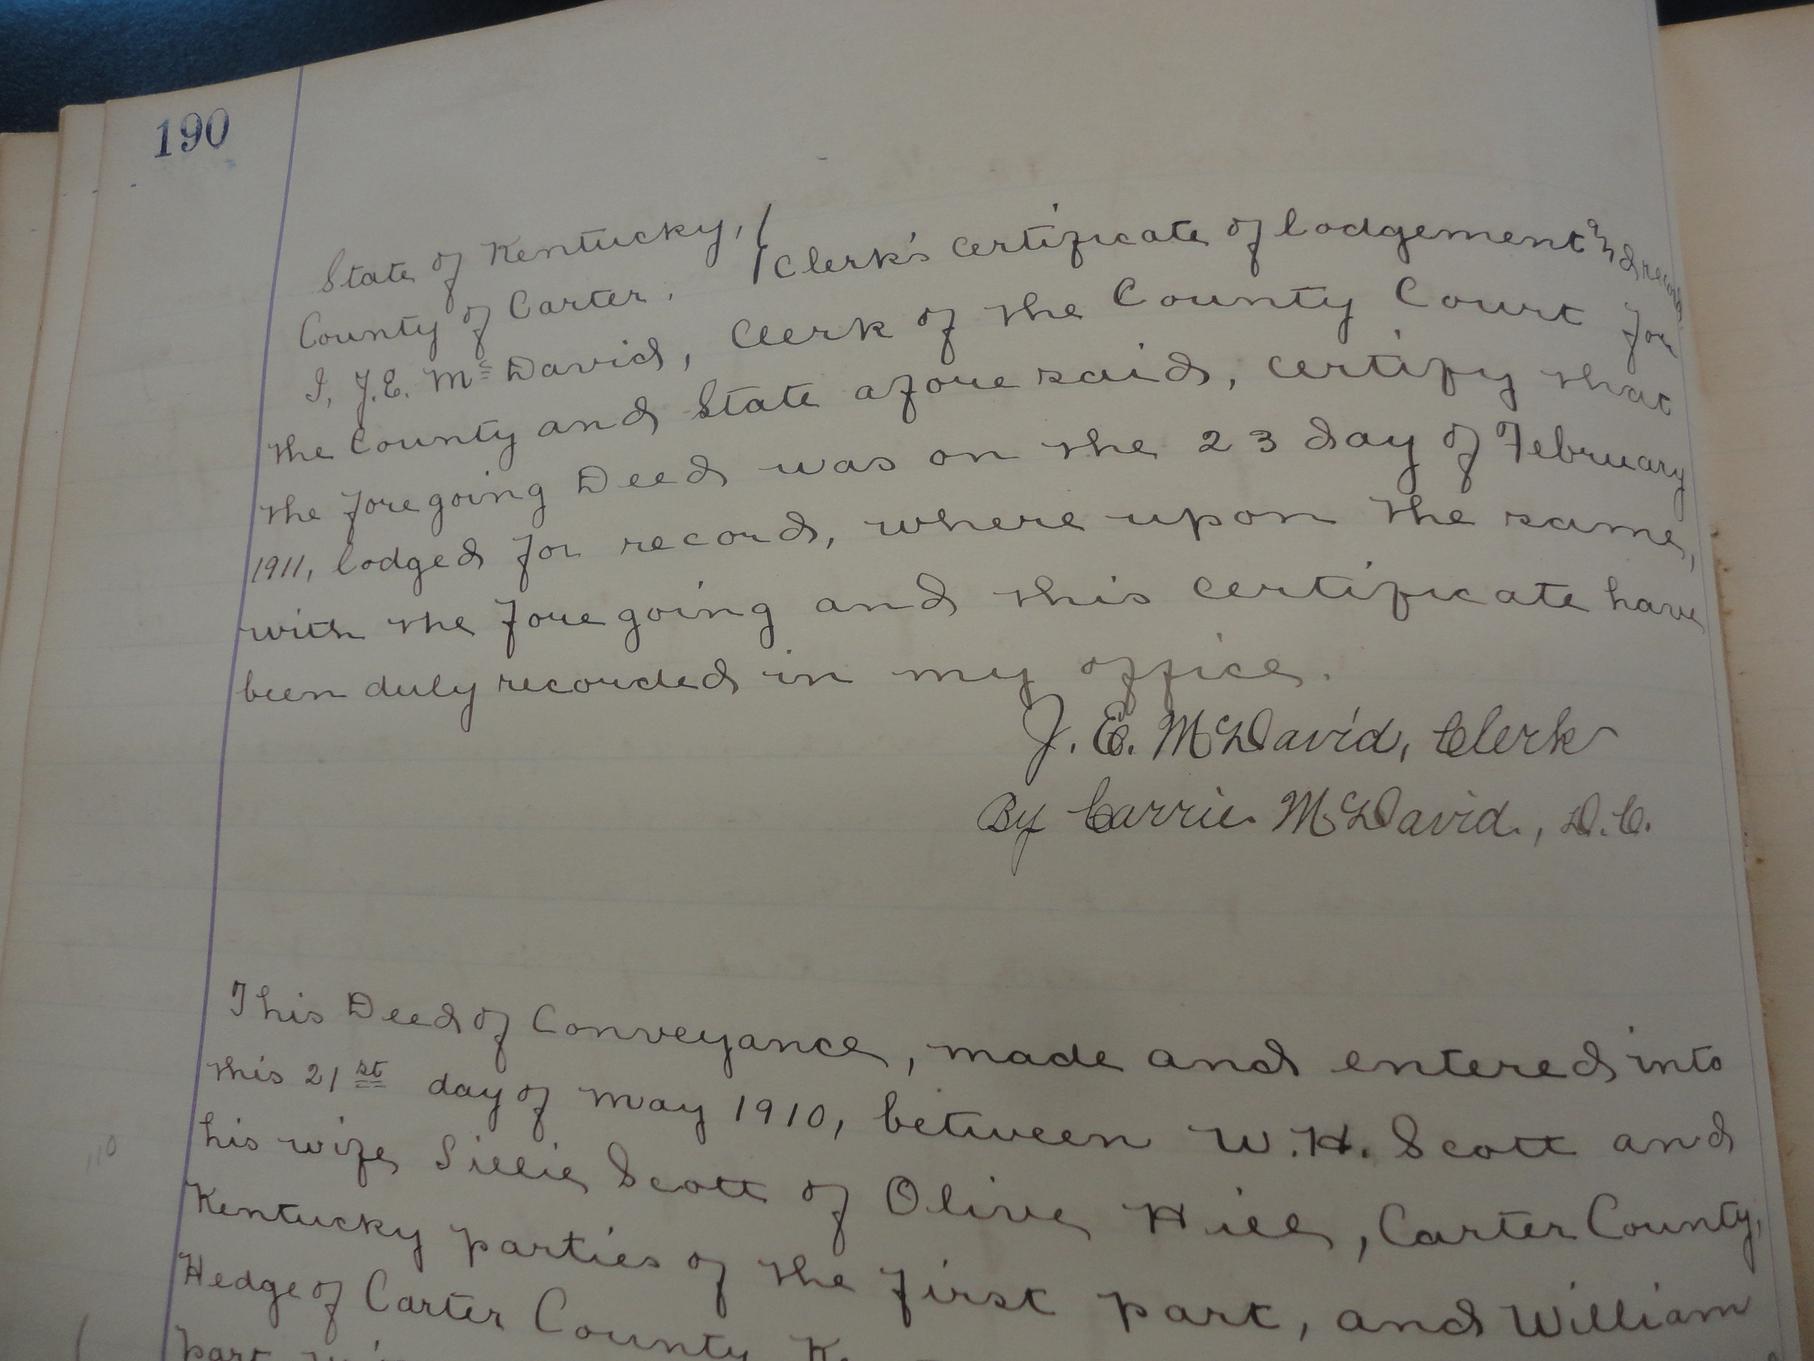 190
State of Kentucky,
County of Carter. Clerk's certificate of lodgement and record
I, J.E. McDavid, Clerk of the County Court for
the County and State afore said, certify that
the foregoing Deed was on the 23 day of February
1911, lodged for record, where upon the same,
with the foregoing and this certificate have
been duly recorded in my office.
J. E. McDavid, Clerk
By Carrie McDavid, D.C.
This Deed of Conveyance, made and entered into
this 21st day of May 1910, between W.H. Scott and
his wife, Lillie Scott of Olive Hill, Carter County,
Kentucky parties of the first part, and William
Hedge of Carter County K
part